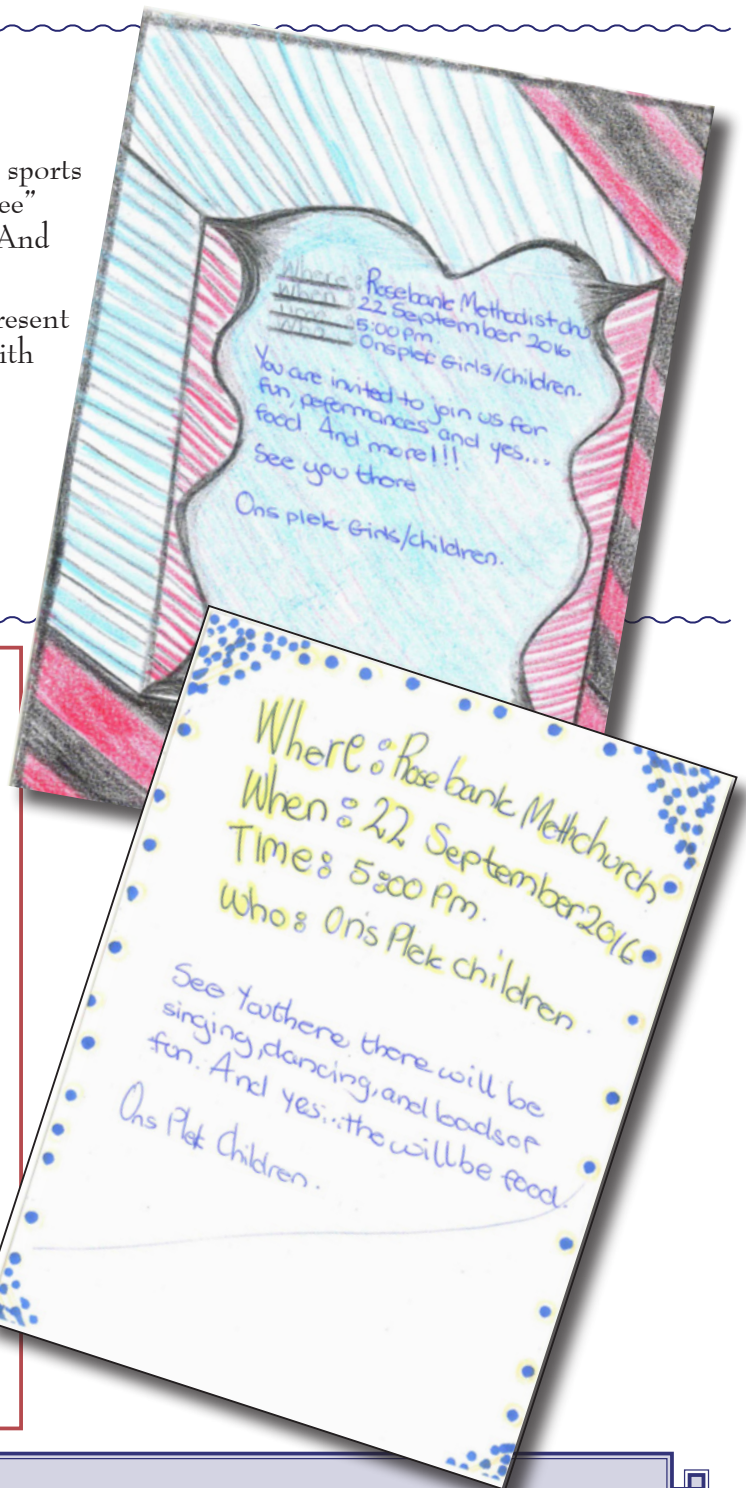 sports
ee”
And
resent
ith
Where : Rosebank Methodist chu
When : 22 September 2016
Time : 5:00 pm.
Who : Onsplek Girls/children.
You are invited to join us for
fun, peformances and yes...
food And more!!!
See you there
Ons plek Girls/children.
Where : Rose bank Methchurch
When : 22 September 2016
Time : 5:00 Pm.
Who : On's Plek children.
See Youthere there will be
singing, dancing, and loads of
fun. And Yes...the will be food.
Ons Plek Children.